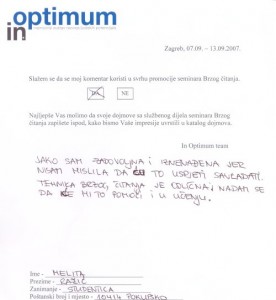 in optimum
Zagreb, 07.09. – 13.09.2007.
Slažem se da se moj komentar koristi u svrhu promocije seminara Brzog čitanja.
DA NE
Najljepše Vas molimo da svoje dojmove za službenog dijela seminara Brzog
čitanja zapišete ispod, kako bismo Vaše impresije uvrstili u katalog dojmova.
In Optimum team
JAKO SAM ZADOVOLJNA I IZNENAĐENA JER
NISAM MISLILA DA ĆU TO USPJETI SAVLADATI.
TEHNIKA BRZOG ČITANJA JE ODLIČNA I NADAM SE
DA ĆE MI TO POMOĆI I U UČENJU.
Ime – MELITA
Prezime – RAŽIĆ
Zanimanje – STUDENTICA
Poštanski broj i mjesto – 10414 POKUPSKO